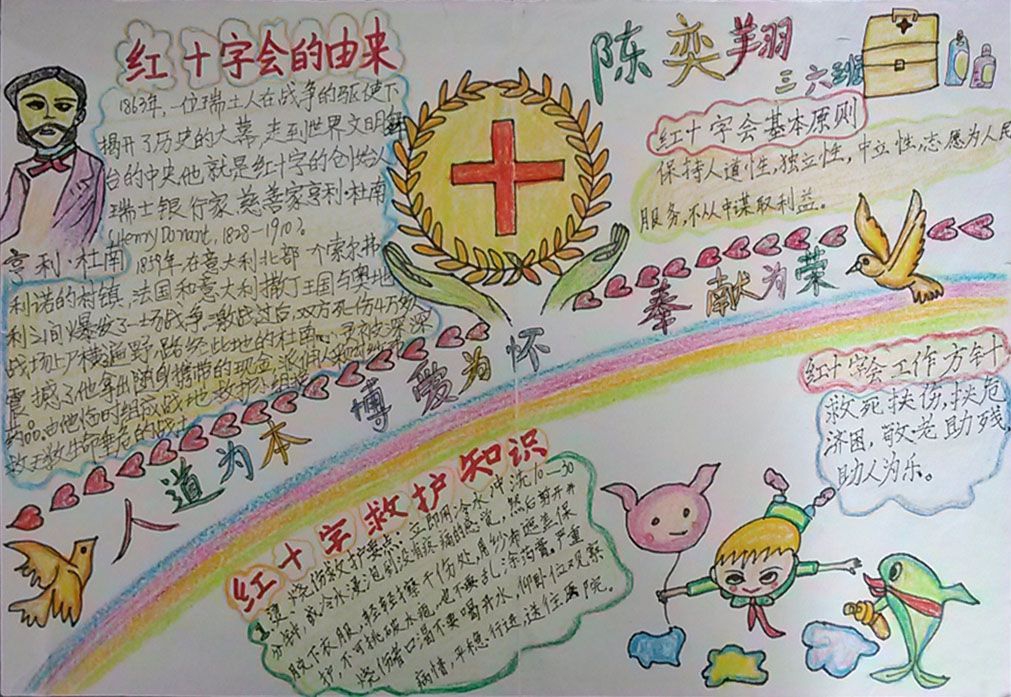 红十字会的由来
1863年,一位瑞士人在战争的驱使下
揭开了历史的大幕,走到世界文明舞
台的中央,他就是红十字的创始人
瑞士银行家、慈善家亨利·杜南
(Henry Dunant, 1828-1910)。
亨利·杜南
1859年,在意大利北部一个索尔弗
利诺的村镇,法国和意大利撒丁王国与奥地
利之间爆发了一场战争,激战过后,双方死伤4万多
战场上尸横遍野,路经此地的杜南
震撼了,他拿出随身携带的现金,派佣人
由他临时组成战地救护小组
陈奕翔
三六班
红十字会基本原则
保持人道性,独立性,中立性,志愿为人民
服务,不从中谋取利益。
人道为本 博爱为怀 奉献为荣
红十字会工作方针
救死扶伤,扶危
济困,敬老助残,
助人为乐。
红十字救护知识
1烫、烧伤救护要点:立即用冷水冲洗10-30
分钟,或冷水浸泡到没有疼痛的感觉,然后剪开并
脱下衣服,轻轻擦干伤处,用纱布遮盖保
护,不可挑破水泡,也不要乱涂药膏。严重
烧伤者口渴不要喝开水,仰卧位观察
病情,平稳行进,送往医院。